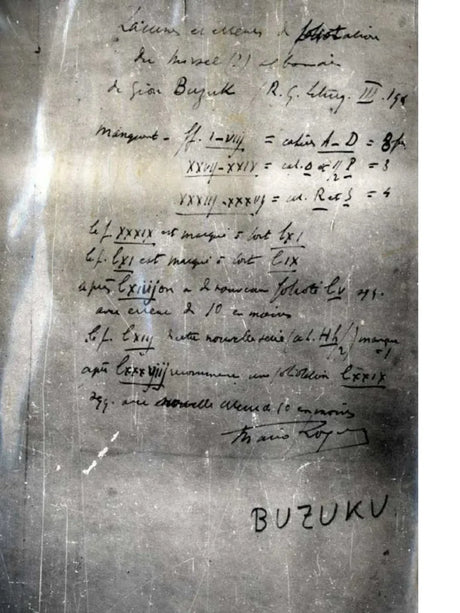 Lacunes et erreurs de foliotation
du Missel (?) albanais
de Gion Buzuk (R. G. Liturg. III. 194
manquent - ff. I-VIIJ = cahiers A-D = 8 ff.
XXVIJ-XXIX = cah. O et ½ P = 3
XXXIIJ-XXXVJ = cah. R et S = 4
le f. XXXIX est marqué à tort LXI
le f. LXI est marqué à tort LIX
après LXIIIJ on a de nouveau folioté LV sqq.
avec erreur de 10 en moins
le f. LXIJ cette nouvelle série (cah. Hh/2) manque
après LXXXVIIJ recommence une foliotation LXXIX
sqq. avec nouvelle erreur de 10 en moins
Mario Roques
BUZUKU